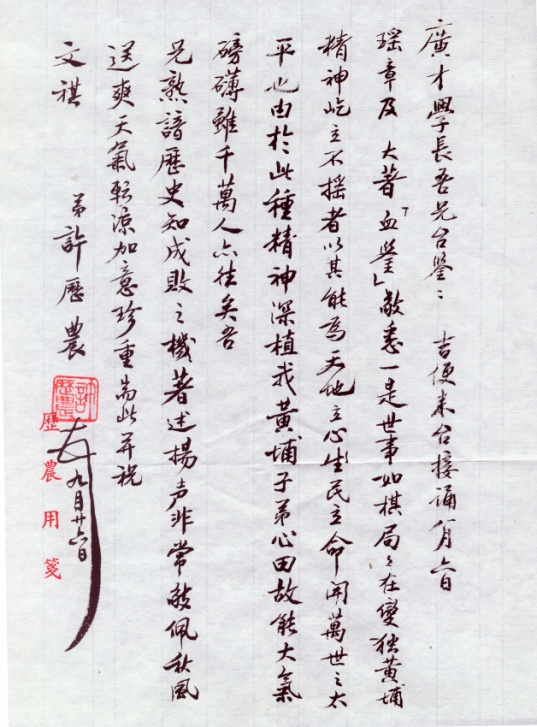 廣才學長吾兄台鑒： 吉便來台接誦八月六日
瑤章及 大著「血瑩」敬悉一是世事如棋局々在變獨黃埔
精神屹立不搖者以其能為天地立心生民立命開萬世之太
平也由於此種精神深植我黃埔子弟心田故能大氣
磅礴雖千萬人亦往矣吾
兄熟諳歷史知成敗之機著述揚声非常敬佩秋風
送爽天氣転涼加意珍重耑此并祝
文祺
弟許歷農
九月廿六日
歷農用箋